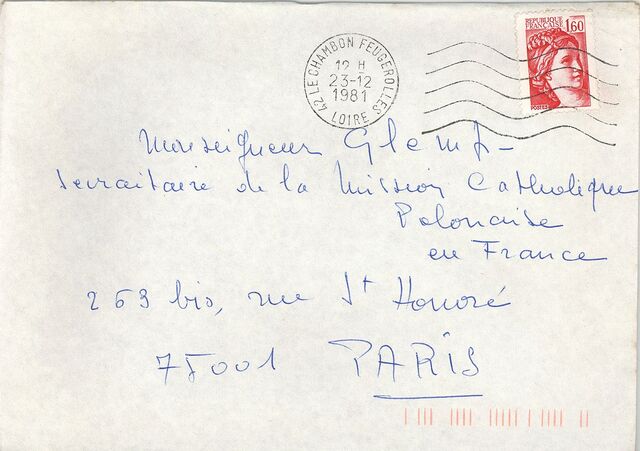 REPUBLIQUE FRANÇAISE
1,60
POSTES
42 LE CHAMBON FEUGEROLLES
12 H
23-12
1981
LOIRE
Monseigneur Glemp-
Secraitaire de la Mission Catholique
Polonaise
en France
263 bis, rue St Honoré
75001 PARIS